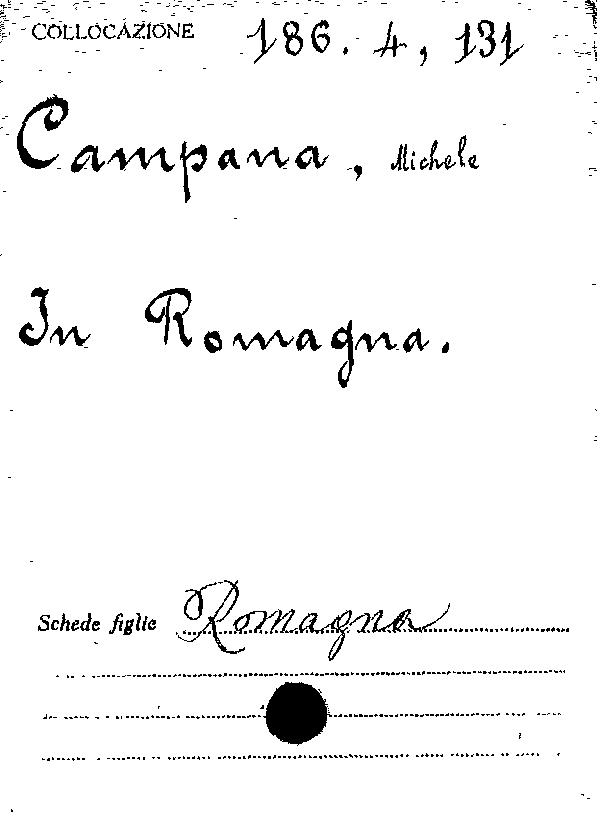 COLLOCAZIONE 186. 4, 131
Campana, Michele
In Romagna.
Schede figlie Romagna